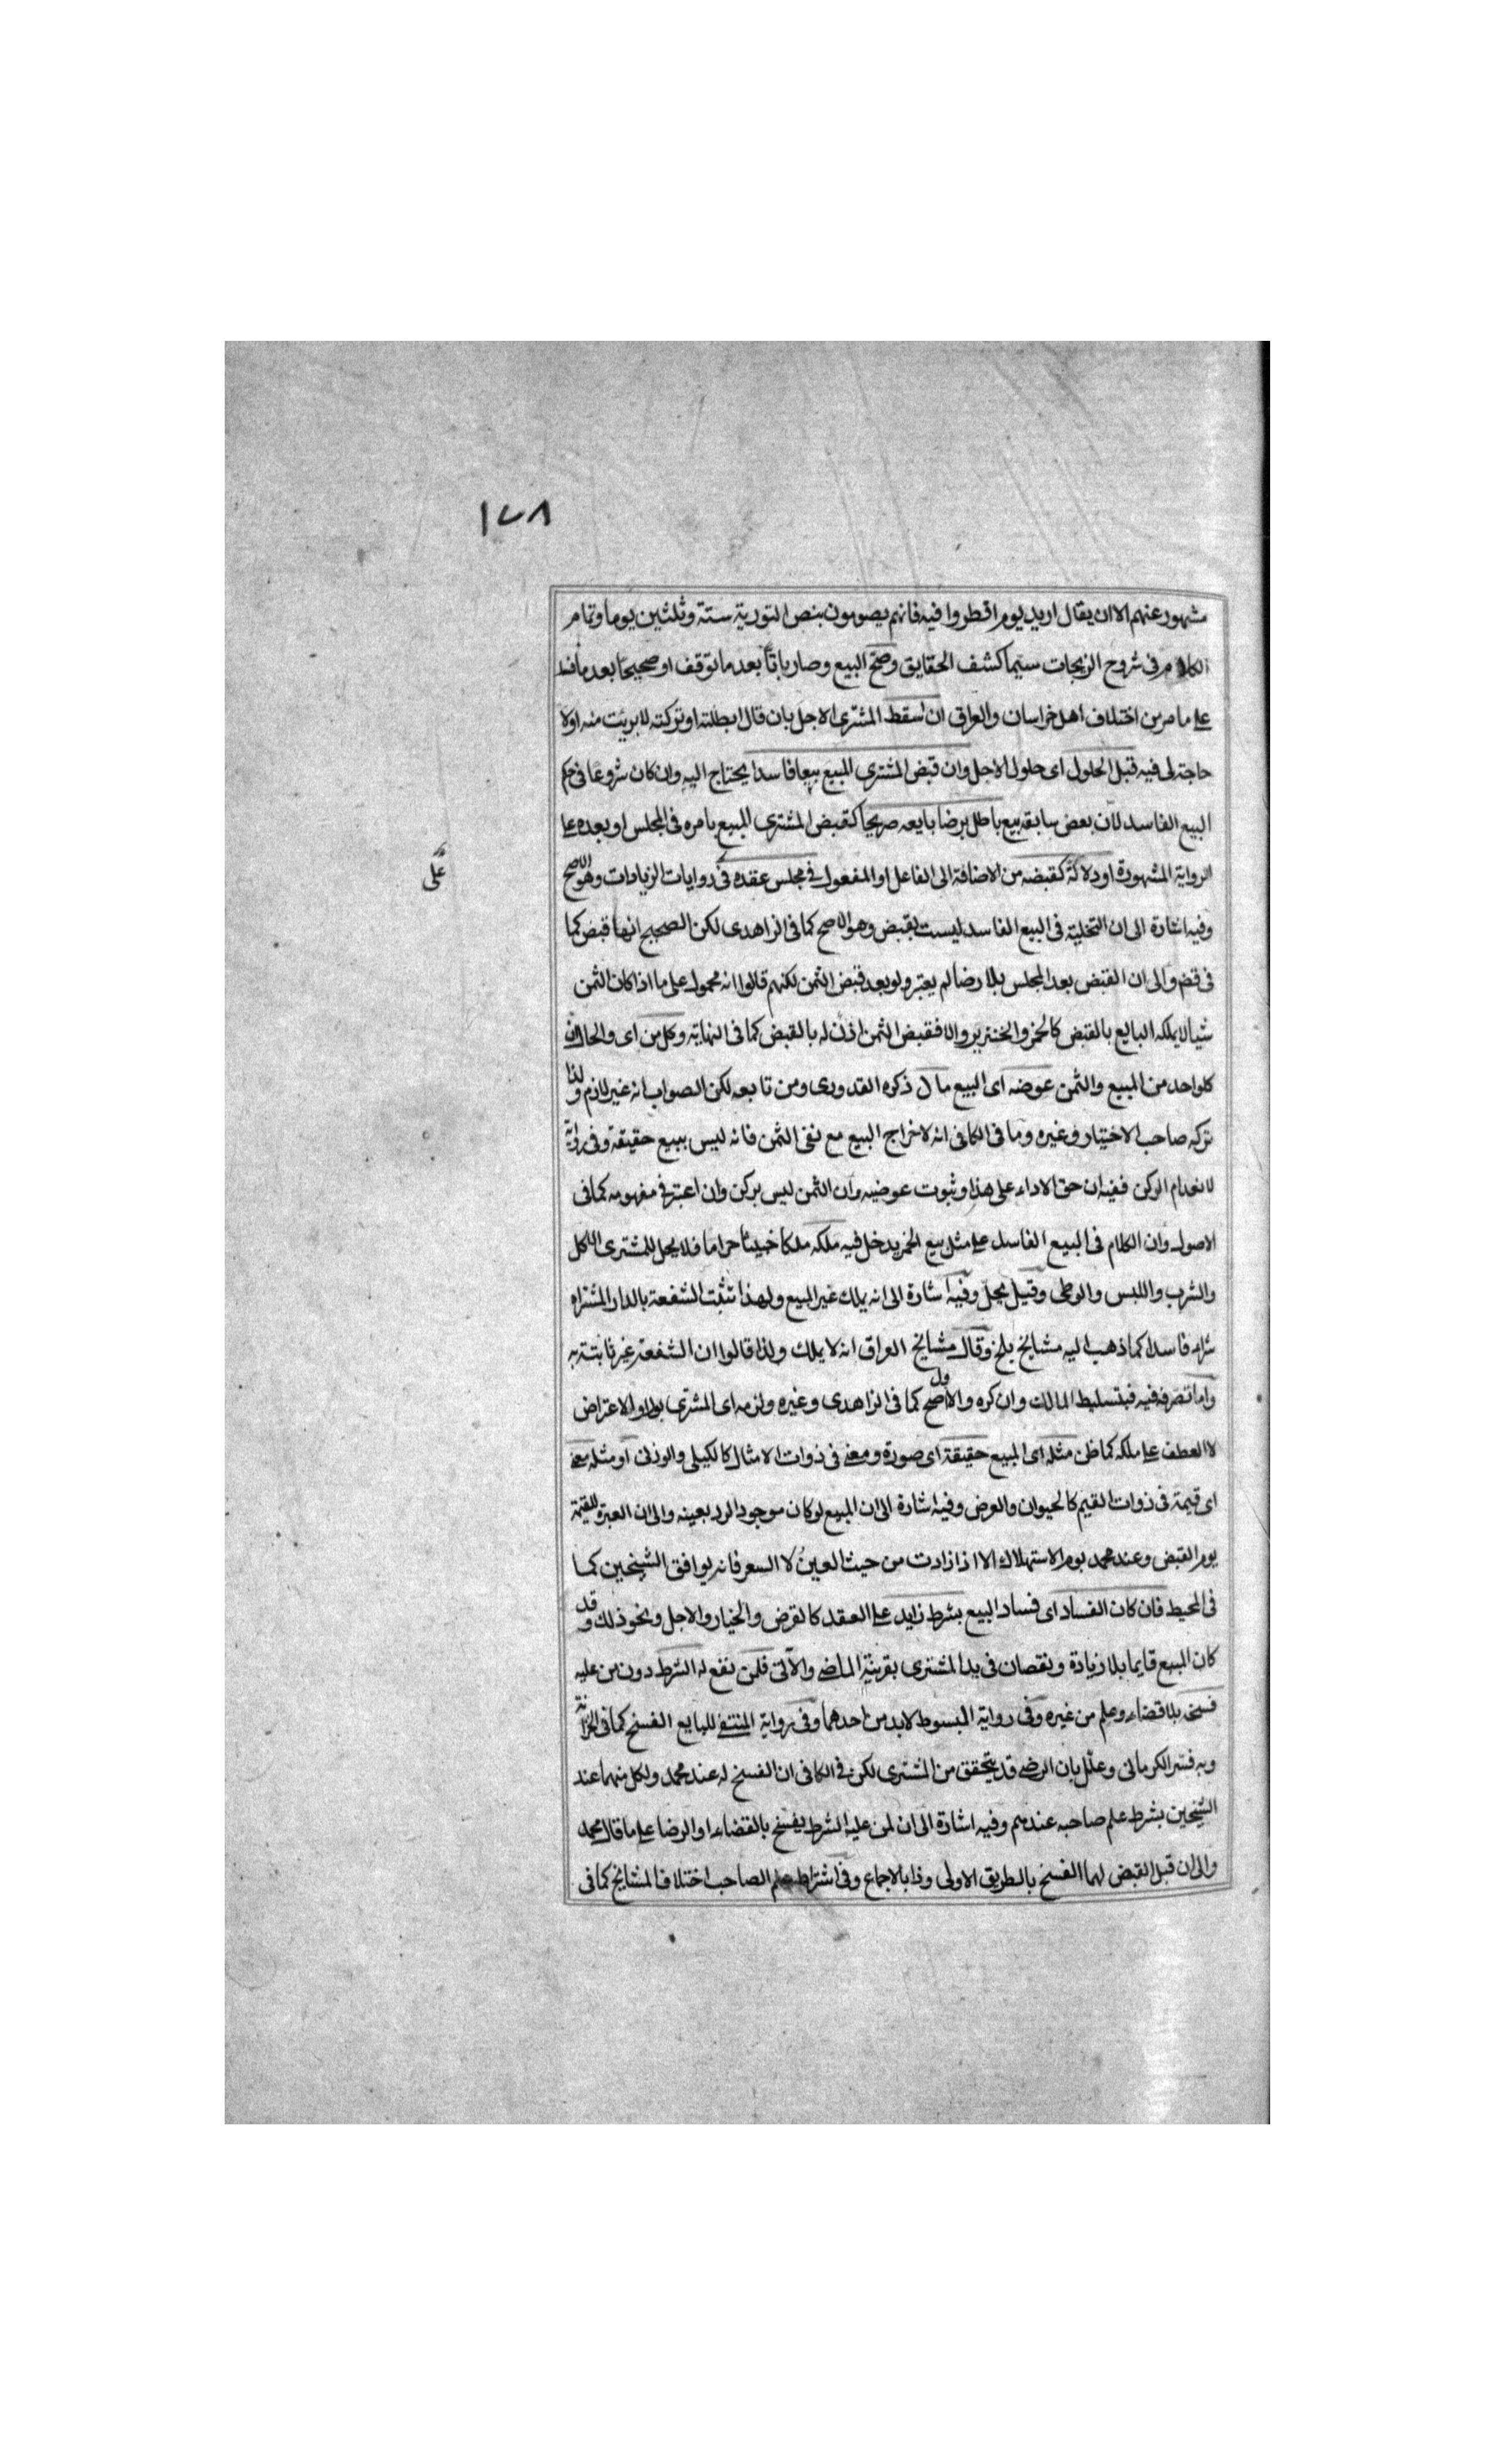 ١٧٨
مشهور عنهم الا ان يقال اريد يوم افطروا فيه فانهم يصومون بنص التورية ستة وثلثين يوما وتمام
الكلام في شروح الزيجات سيما كشف الحقايق وصح البيع وصار باتا بعد ما توقف او صحيحا بعد ما فسد
على ما مر من اختلاف اهل خراسان والعراق ان اسقط المشترى الاجل بان قال ابطلته او تركته لا بريت منه او لا
حاجة لى فيه قبل الحلول اى حلول الاجل وان قبض المشترى المبيع بيعا فاسدا يحتاج اليه وان كان شروعا في حكم
البيع الفاسد لان بعض سابقه بيع باطل برضا بايعه صريحا كقبض المشترى المبيع بامره في المجلس او بعده على
الرواية المشهورة او دلالة كقبضه من الاضافة الى الفاعل او المفعول في مجلس عقده في روايات الزيادات وهو الاصح
على
وفيه اشارة الى ان التخلية في البيع الفاسد ليست بقبض وهو الاصح كما في الزاهدى لكن الصحيح انها قبض كما
في قض والى ان القبض بعد المجلس بلا رضا لم يعتبر ولو بعد قبض الثمن لكنهم قالوا انه محمول على ما اذا كان الثمن
شيا لا يملكه البايع بالقبض كالخمر والخنزير والا فقبض الثمن اذن له بالقبض كما في النهاية وكل من اى والحال ان
كلواحد من المبيع والثمن عوضه اى البيع مال ذكره القدورى ومن تابعه لكن الصواب انه غير لازم ولذا
تركه صاحب الاختيار وغيره وما في الكافى انه لاخراج البيع مع نفى الثمن فانه ليس ببيع حقيقة وفى رواية
لانعدام الركن ففيه ان حق الاداء على هذا وثبوت عوضيه وان الثمن ليس بركن وان اعتبر في مفهومه كما في
الاصول وان الكلام في البيع الفاسد على مثل بيع الخمر يدخل فيه ملكه ملكا خبيثا حراما فلا يحل للمشترى الاكل
والشرب واللبس والوطى وقيل يحل وفيه اشارة الى انه يملك غير المبيع ولهذا تثبت الشفعة بالدار المشتراه
شراء فاسدا كما ذهب اليه مشايخ بلخ وقال مشايخ العراق انه لا يملك ولذا قالوا ان الشفعة غير ثابتة به
واما تصرفه فيه فبتسليط المالك وان كره والاول اصح كما في الزاهدى وغيره ولزمه اى المشترى بواو الاعتراض
لا العطف على ملكه كما ظن مثله اى المبيع حقيقة اى صورة ومعنى في ذوات الامثال كالكيلى والوزنى او مثله معنى
اى قيمة في ذوات القيم كالحيوان والعرض وفيه اشارة الى ان المبيع لو كان موجودا لرد بعينه والى ان العبرة للقيمة
يوم القبض وعند محمد يوم الاستهلاك الا اذا زادت من حيث العين لا السعر فانه يوافق الشيخين كما
في المحيط فان كان الفساد اى فساد البيع بشرط زايد على العقد كالقرض والخيار والاجل ونحو ذلك وقد
كان المبيع قايما بلا زيادة ونقصان في يد المشترى بقرينة الماضى والآتى فلمن نفع له الشرط دون من عليه
فسخه بلا قضاء وعلم من غيره وفى رواية المبسوط لابد من احدهما وفى رواية المنتقى للبايع الفسخ كما في الخزانة
وبه فسر الكرمانى وعلل بان الرضى قد يتحقق من المشترى لكن في الكافى ان الفسخ له عند محمد ولكل منهما عند
الشيخين بشرط علم صاحبه عندهم وفيه اشارة الى ان لمن عليه الشرط يفسخ بالقضاء او الرضا على ما قال محمد
والى ان قبل القبض لهما الفسخ بالطريق الاولى وذا بالاجماع وفى اشتراط علم الصاحب اختلاف المشايخ كما في